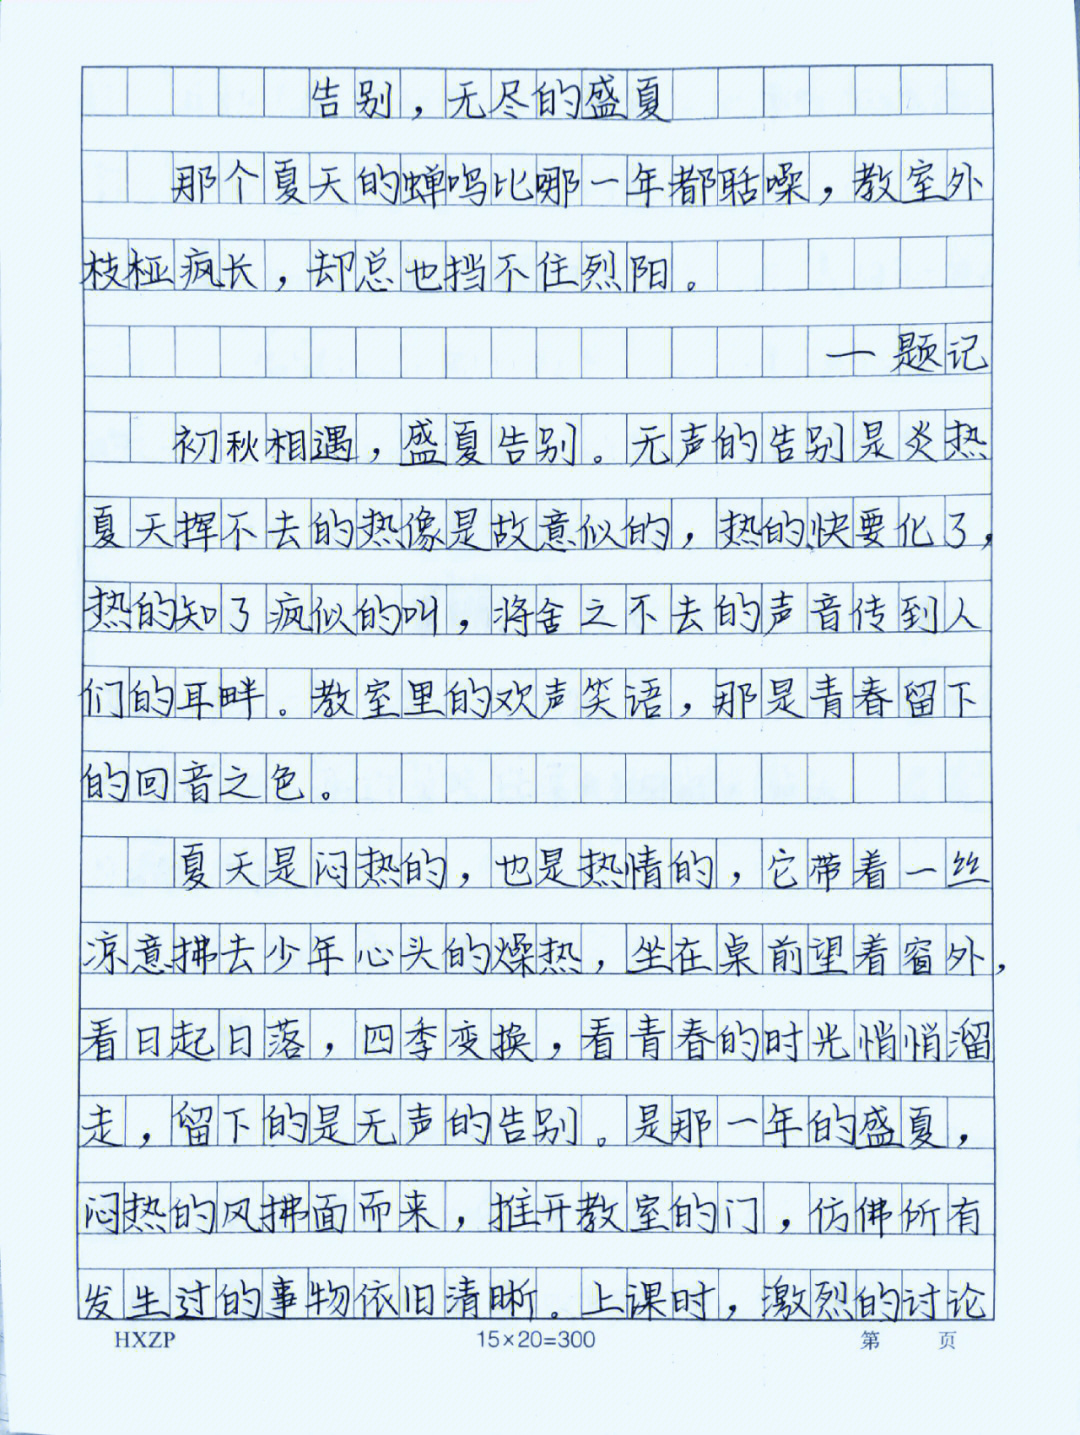 告别，无尽的盛夏
那个夏天的蝉鸣比哪一年都聒噪，教室外
枝桠疯长，却总也挡不住烈阳。
一题记
初秋相遇，盛夏告别。无声的告别是炎热
夏天挥不去的热像是故意似的，热的快要化了，
热的知了疯似的叫，将舍之不去的声音传到人
们的耳畔。教室里的欢声笑语，那是青春留下
的回音之色。
夏天是闷热的，也是热情的，它带着一丝
凉意拂去少年心头的燥热，坐在桌前望着窗外，
看日起日落，四季变换，看青春的时光悄悄溜
走，留下的是无声的告别。是那一年的盛夏，
闷热的风拂面而来，推开教室的门，仿佛所有
发生过的事物依旧清晰。上课时，激烈的讨论
HXZP 15×20=300 第 页